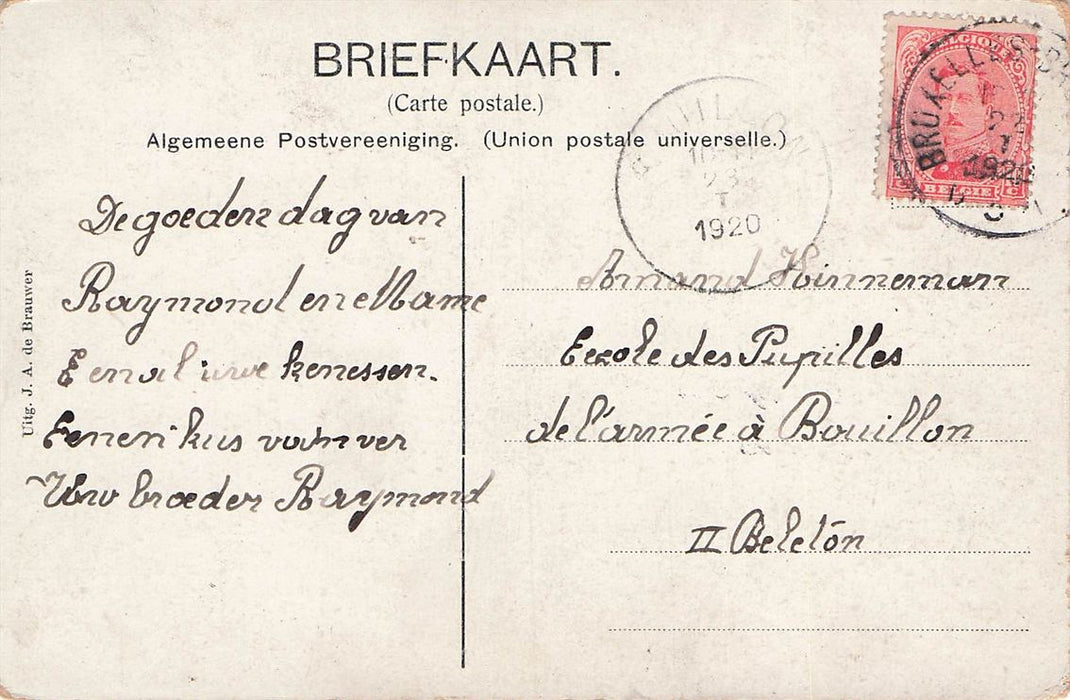 BRIEFKAART.
(Carte postale.)
Algemeene Postvereeniging. (Union postale universelle.)
BELGIQUE
BELGIË
BRUXELLES
1920
23
1920
De goeden dag van
Raymond en Mame
En al uwe kenessen.
Eenen kus van ver
Uw broeder Raymond
Armand Hinneman
Ecole des Pupilles
de l'armée à Bouillon
II Peletōn
Uitg. J. A. de Brauwer